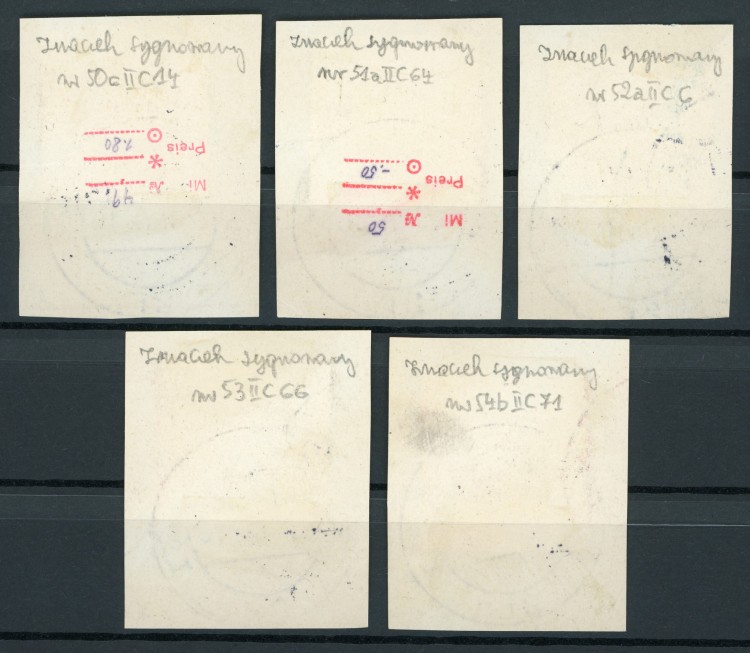 Znaczek sygnowany
nr 50a II C 14
1.80
Preis
Mi. №
49
Znaczek sygnowany
nr 51a II C 64
-.50
Preis
Mi №
50
Znaczek sygnowany
nr 52a II C 6
Znaczek sygnowany
nr 53 II C 66
Znaczek sygnowany
nr 54b II C 71